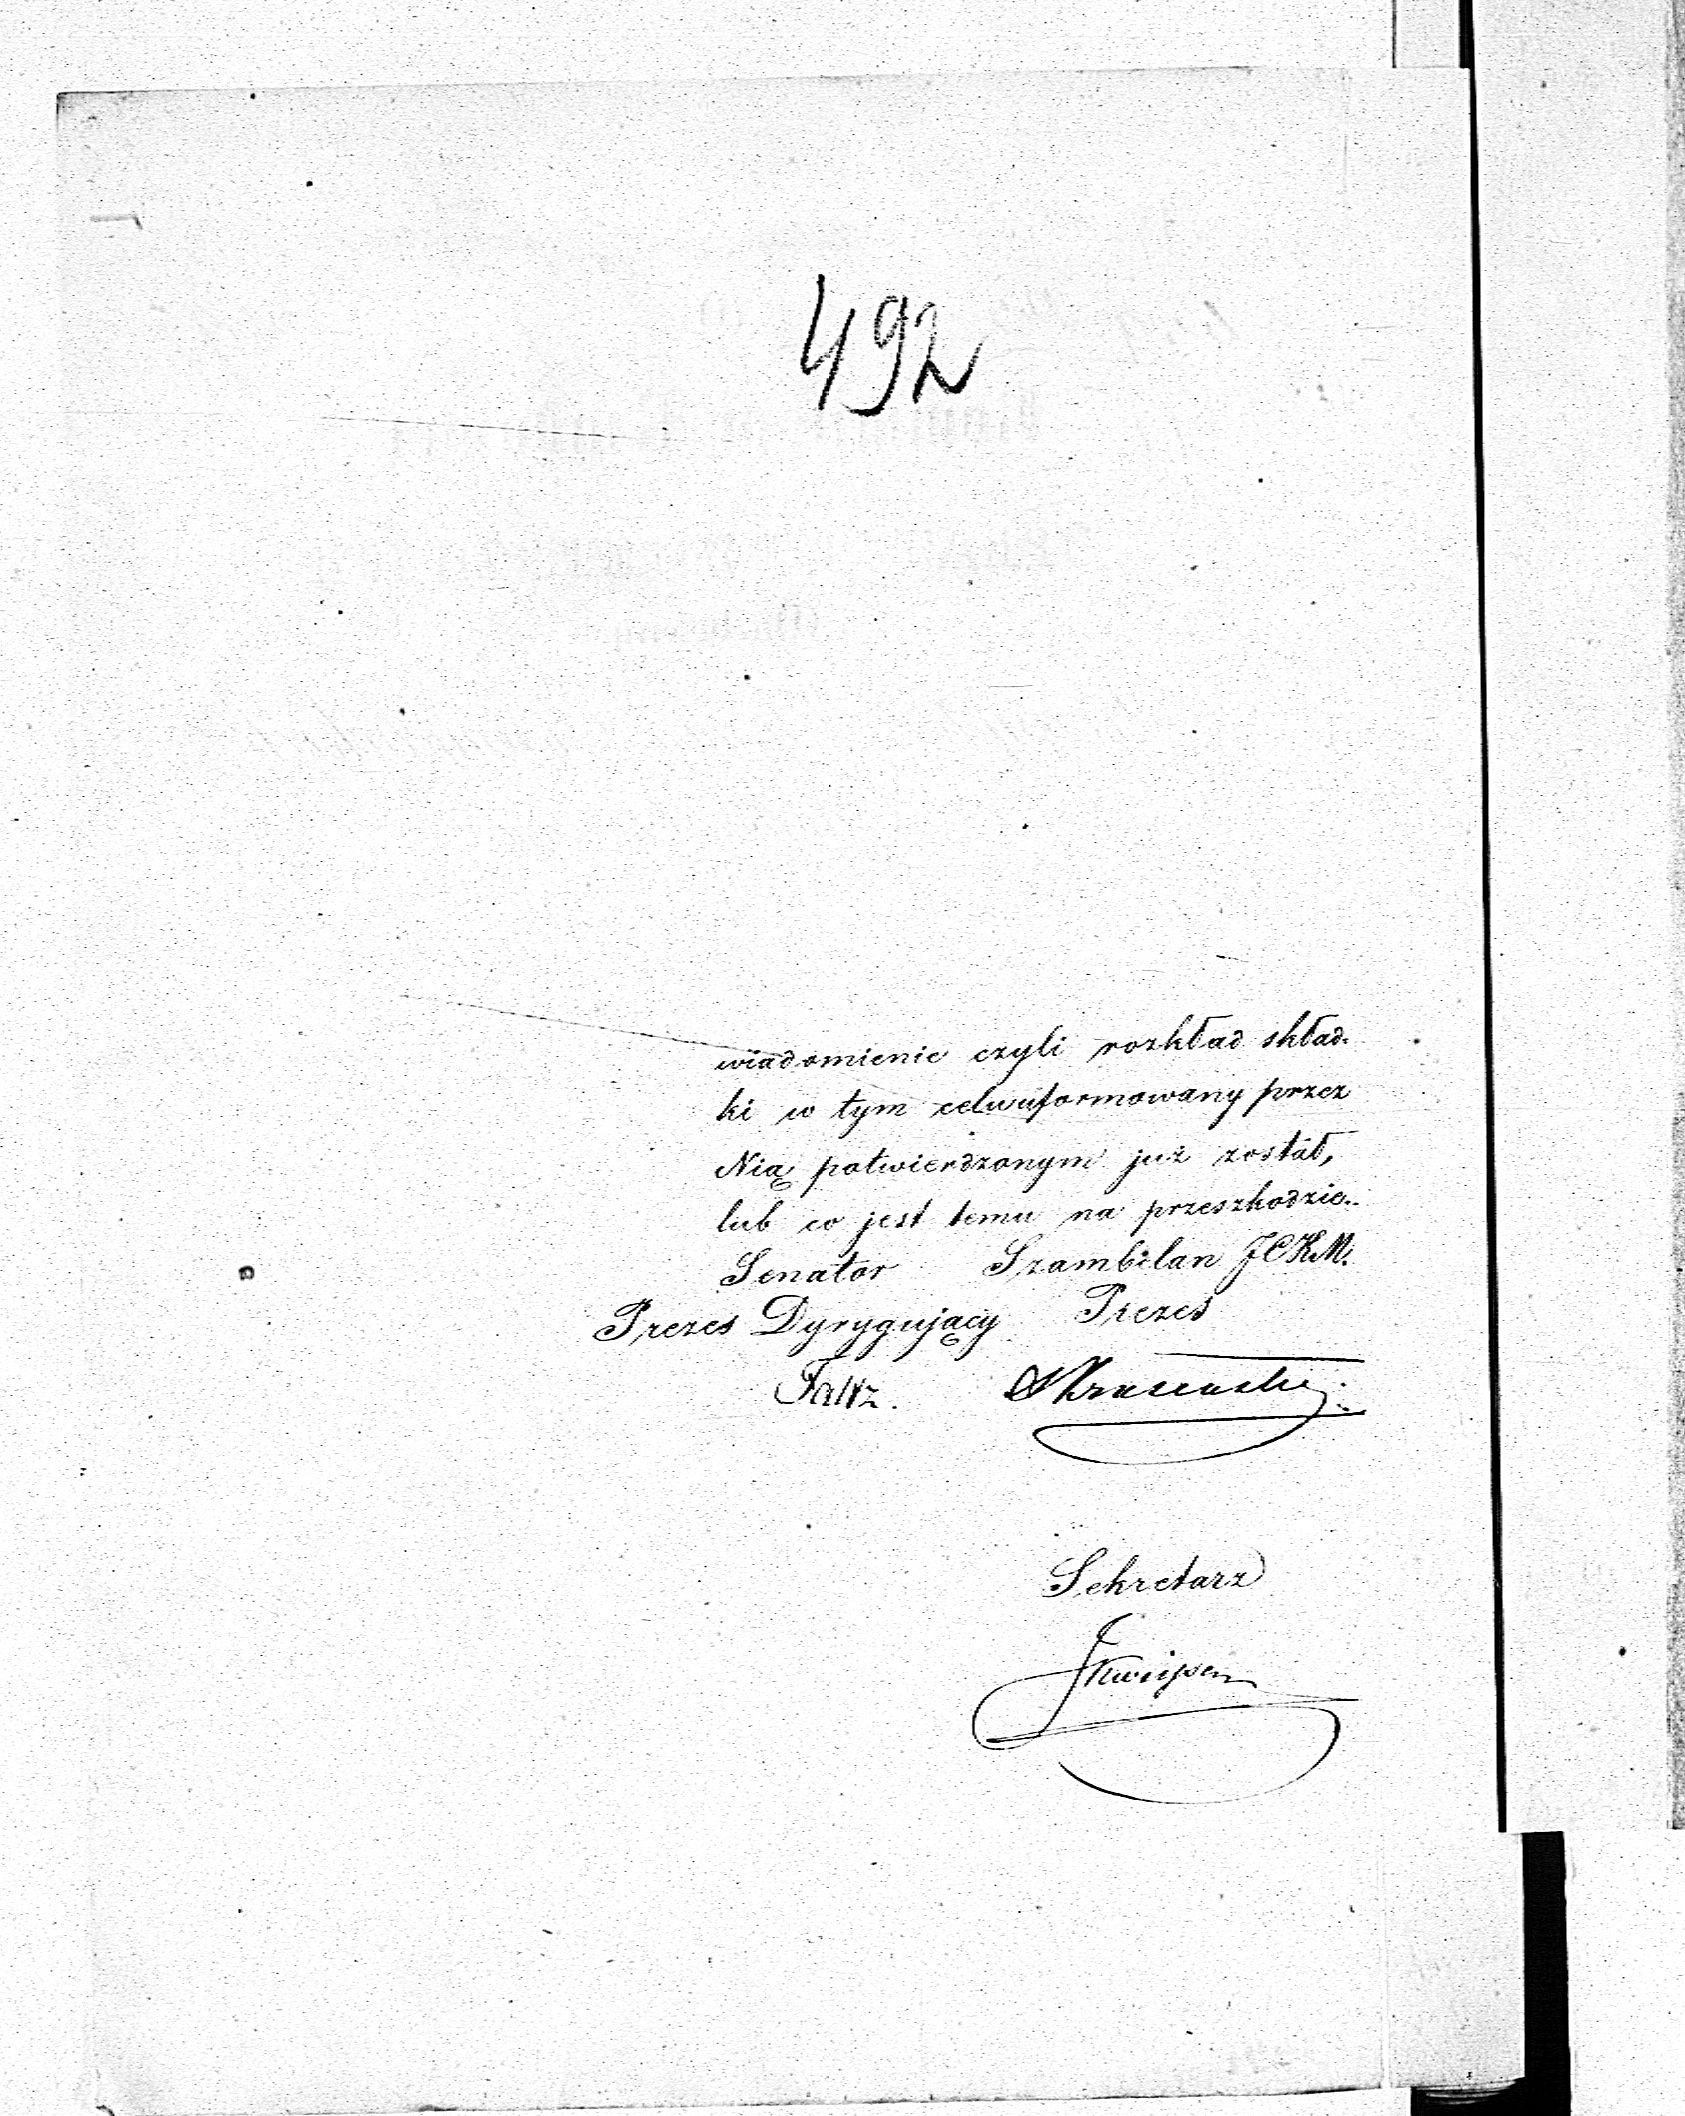 492
wiadomienie czyli rozkład skład-
ki w tym celu uformowany przez
Nią potwierdzonym już został,
lub co jest temu na przeszkodzie.
Senator Szambelan JCKM.
Prezes Dyrygujący Prezes
Sekretarz